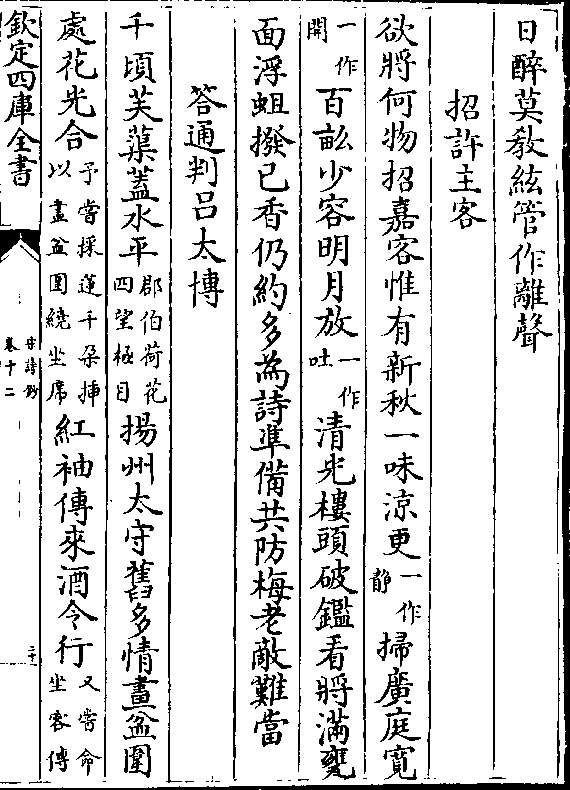 日醉莫教絃管作離聲
招許主客
欲將何物招嘉客惟有新秋一味涼更一作静掃廣庭寬
一作開百畝少容明月放一作吐清光樓頭破鑑看將滿甕
面浮蛆撥已香仍約多為詩凖備共防梅老敵難當
答通判吕太博
千頃芙蕖蓋水平郡伯荷花四望極目揚州太守舊多情畫盆圍
處花光合予嘗採蓮千朶揷以畫盆圍繞坐席紅袖傳來酒令行又嘗命坐客傳
欽定四庫全書
宋詩鈔
卷十二